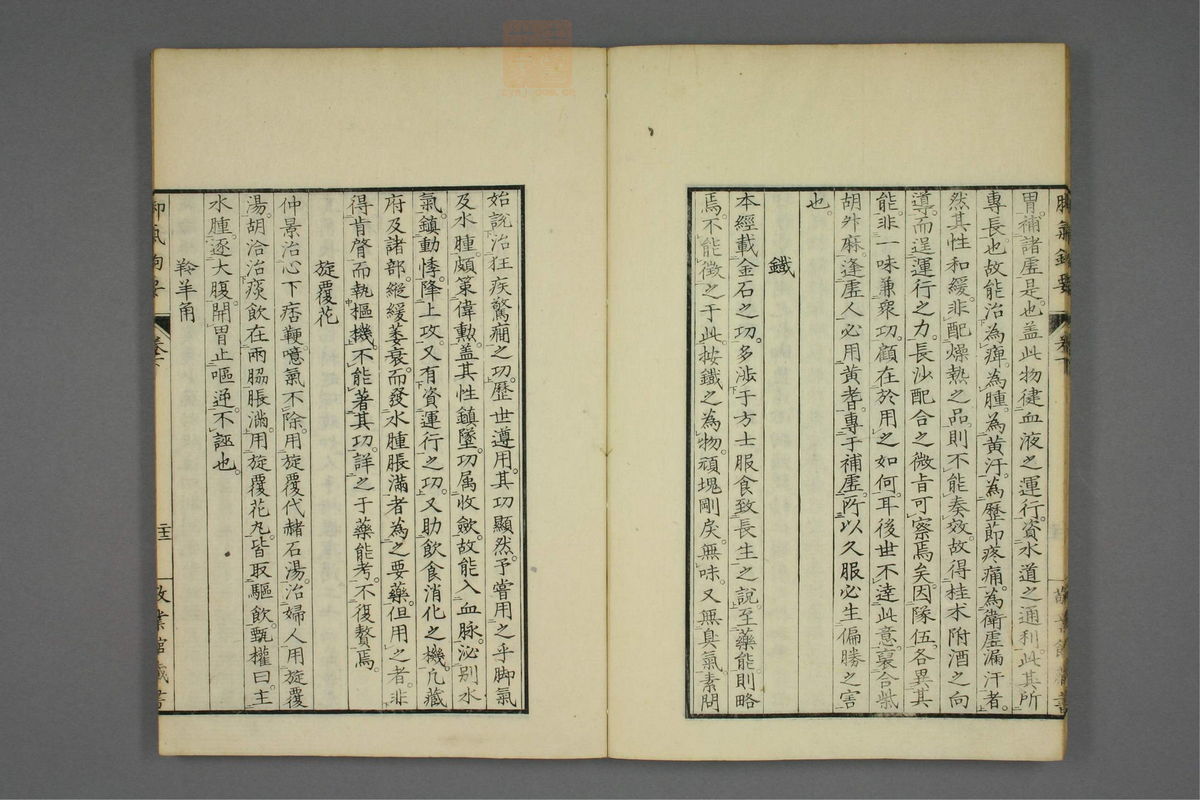 胃補諸虛是也蓋此物律血液之運行資水道之通利此其所
專長也故能治為痺為腫為黃汗為歷節疼痛為衛虛漏汗者
然其性和緩非配燥熱之品則不能奏效故得桂朮附酒之向
導而逞運行之力長沙配合之微旨可察焉矣因隊伍各異其
能非一味兼衆功顧在於用之如何耳後世不達此意裏合柴
胡升麻逢虛人必用黃耆專于補虛所以久服必生偏勝之害
也
鐵
本經載金石之功多涉于方士服食致長生之說至藥能則略
焉不能徵之于此按鐵之為物頑塊剛戾無味又無臭氣素問
始說治狂疾驚癎之功歷世遵用其功顯然予嘗用之乎脚氣
及水腫頗策偉勳蓋其性鎮墜功属收斂故能入血脉泌別水
氣鎮動悸降上攻又有資運行之功又助飲食消化之機凢藏
府及諸部縱緩萎衰而發水腫脹滿者為之要藥但用之者非
得肯綮而執樞機不能著其功詳之于藥能考不復贅焉
旋覆花
仲景治心下痞鞕噫氣不除用旋覆代赭石湯治婦人用旋覆
湯胡洽治痰飲在兩脇脹滿用旋覆花丸皆取驅飲甄權曰主
水腫逐大腹開胃止嘔逆不誣也
羚羊角
卷下